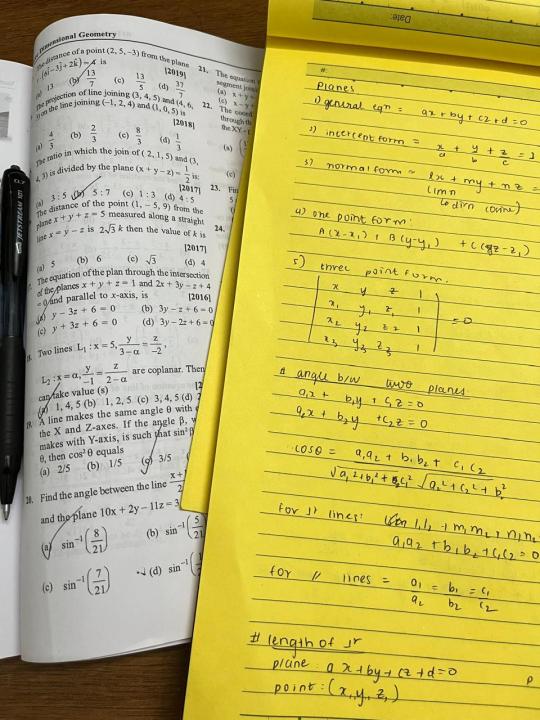 Dimensional Geometry
distance of a point (2, 5, −3) from the plane
(6î −3ĵ + 2k̂) = 4 is
[2019]
13 (b) 13/7 (c) 13/5 (d) 37/7
projection of line joining (3, 4, 5) and (4, 6,
3) on the line joining (−1, 2, 4) and (1, 0, 5) is
[2018]
(a) 4/3 (b) 2/3 (c) 8/3 (d) 1/3
The ratio in which the join of (2, 1, 5) and (3,
4, 3) is divided by the plane (x + y − z) = 1/2 is:
[2017]
(a) 3 : 5 (b) 5 : 7 (c) 1 : 3 (d) 4 : 5
The distance of the point (1, − 5, 9) from the
plane x + y + z = 5 measured along a straight
line x = y − z is 2√3 k then the value of k is
[2017]
(a) 5 (b) 6 (c) √3 (d) 4
The equation of the plan through the intersection
of the planes x + y + z = 1 and 2x + 3y − z + 4
= 0 and parallel to x-axis, is [2016]
(a) y − 3z + 6 = 0 (b) 3y − z + 6 = 0
(c) y + 3z + 6 = 0 (d) 3y − 2z + 6 = 0
Two lines L₁ : x = 5, y/3−α = z/−2,
L₂ : x = α, y/−1 = z/2−α are coplanar. Then
can take value (s)
(a) 1, 4, 5 (b) 1, 2, 5 (c) 3, 4, 5 (d)
A line makes the same angle θ with
the X and Z-axes. If the angle β, w
makes with Y-axis, is such that sin² β
θ, then cos² θ equals
(a) 2/5 (b) 1/5 (c) 3/5
20. Find the angle between the line
and the plane 10x + 2y − 11z = 3
(a) sin⁻¹(8/21) (b) sin⁻¹(5/21)
(c) sin⁻¹(7/21) (d) sin⁻¹
21. The equation
segment join
(a) x + y +
(c) x − y
22. The coord
through th
the XY-
(a)
(c)
23. Fin
24.
Date:
#:
Planes
1) general eqn = ax + by + cz + d = 0
2) intercept form = x/a + y/b + z/c = 1
3) normal form = lx + my + nz =
l m n
↳ dirn (cosine)
4) one point form:
A(x−x₁) + B(y−y₁) + C(z−z₁)
5) three point form.
x y z 1
x₁ y₁ z₁ 1
x₂ y₂ z₂ 1 = 0
x₃ y₃ z₃ 1
# angle b/w two planes
a₁x + b₁y + c₁z = 0
a₂x + b₂y + c₂z = 0
cosθ = a₁a₂ + b₁b₂ + c₁c₂
√a₁² + b₁² + c₁² √a₂² + c₂² + b₂²
for ⊥r lines: l₁l₂ + m₁m₂ + n₁n₂
a₁a₂ + b₁b₂ + c₁c₂ = 0
for // lines = a₁/a₂ = b₁/b₂ = c₁/c₂
# length of ⊥r
plane: ax + by + cz + d = 0
point: (x₁, y₁, z₁)
P
JETSTREAM 101